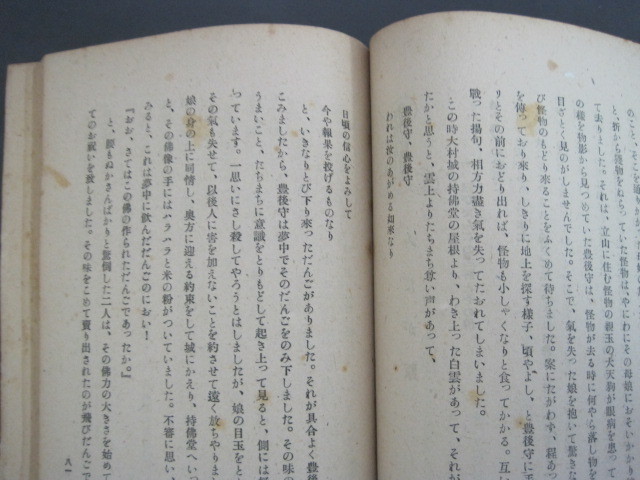 のこと、
と、折から獲物をねらっていた怪物は、やにわにその母娘におそいかかり
て去りましたりそれは、立山に住む怪物の親玉の犬天駒が眼病を患って
の様を物影から見つめていた豊後守は、怪物が去る時に何やら落し物を
目ざとく見のがしませんでした。そこで、氣を失った娘を抱いて驚きな
び怪物のもどり來ることをふくめて待ちました。案にたがわず、程あっ
を傳っており來り、しきりに地上を探す様子、頃やよしと、豊後守に手
りとその前におどり出れば、怪物も小しゃくなりと食ってかかる。互い
戰った揚句、相方力盡き氣を失ってたおれてしまいました。
この時大村城の持佛堂の屋根より、わき上った白雲があって、それが
たかと思うと、雲上よりたちまち尊い声があって、
豊後守、豊後守
われは汝のあがめる如來なり
日頃の信心をよみして
今や報果を授けるものなり
と、いきなりとび下り來っただんごがありました。それが具合よく豊後
こみましたから、豊後守は夢中でそのだんごをのみ下しました。その味の
うまいこと、たちまちに意識をとりもどして起き上って見ると、側には
っています。一思いにさし殺してやろうとはしましたが、娘の目玉をと
その氣も失せて、以後人に害を加えないことを約させて遠く放ちやりま
娘の身の上に同情し、奥方に迎える約束をして城にかえり、持佛堂へいっ
と、その佛像の手にはハラハラと米の粉がついていました。不審に思い、
みると、これは夢中に飮んだだんごのにおい！
『おお、さてはこの佛の作られただんごであったか。』
と、腰もぬかさんばかりと驚倒した二人は、その佛力の大きさを始めて
てのお祝いを致しました。その味をこめて賣り出されたのが飛びだんごで
八一